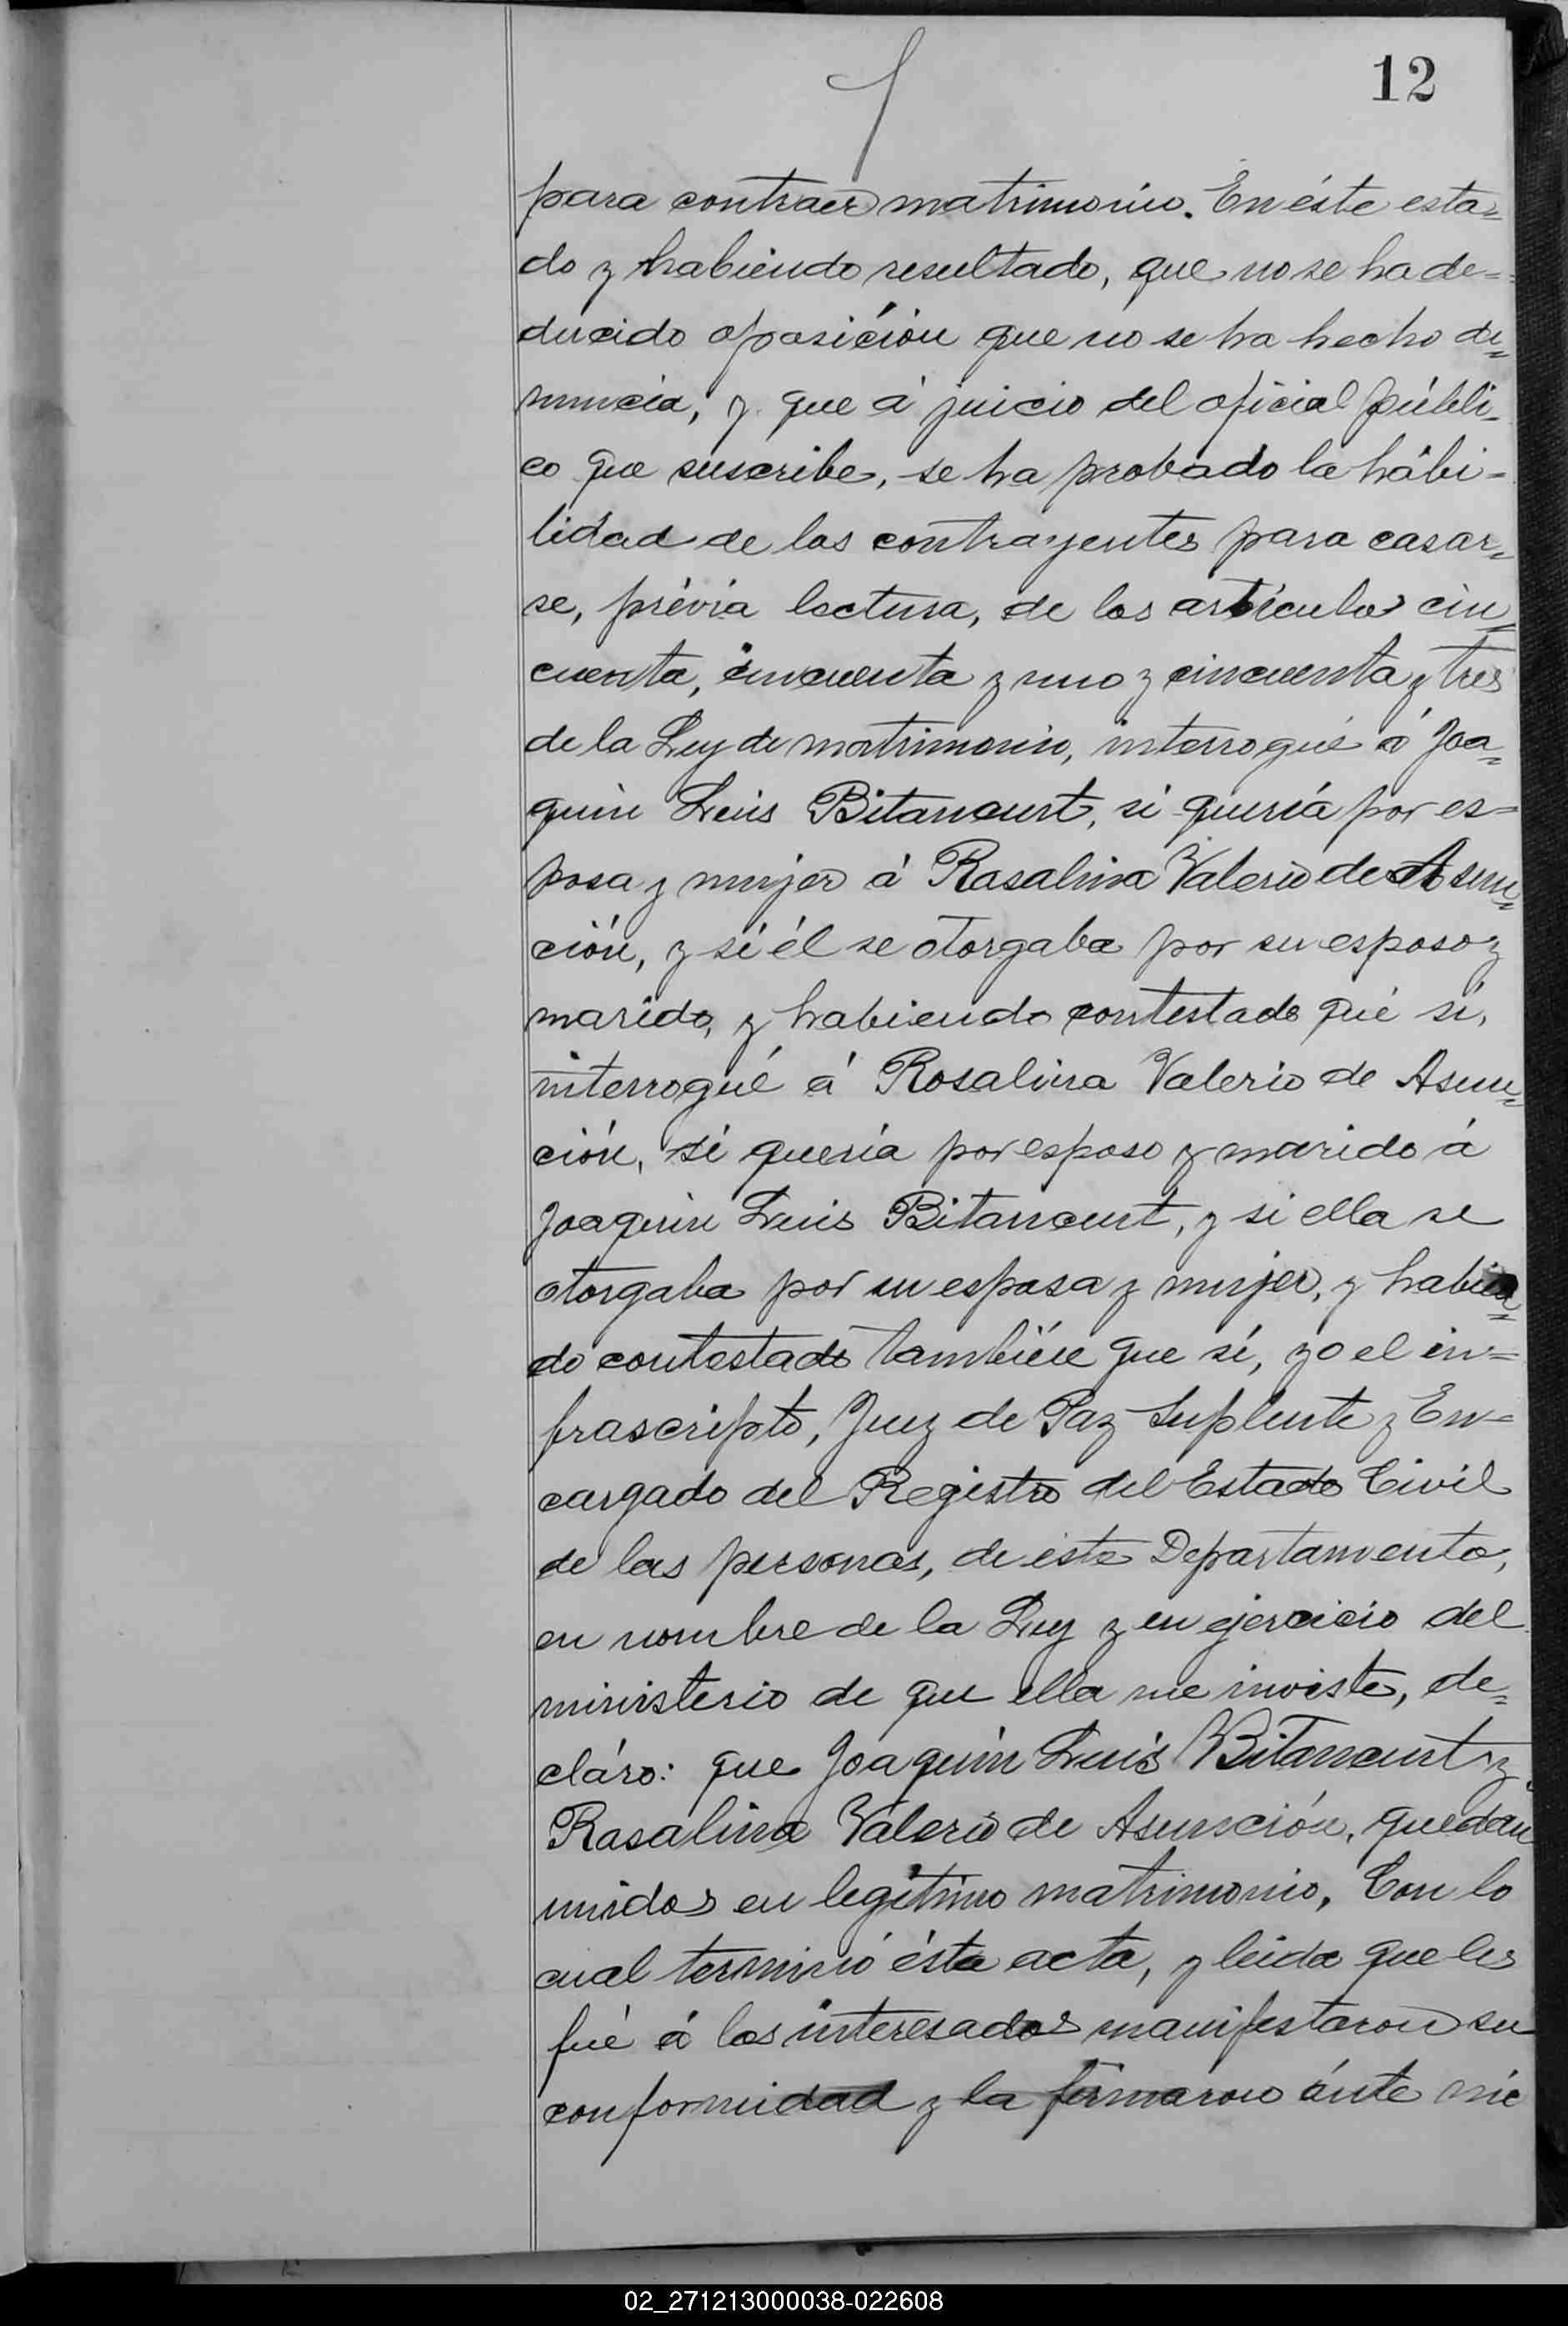 12
para contraer matrimonio. En éste esta=
do y habiendo resultado, que no se ha de=
ducido oposición que no se ha hecho de=
nuncia, y que á juicio del oficial públi=
co que suscribe, se ha probado la hábi=
lidad de los contrayentes para casar=
se, prévia lectura, de los artículos cin=
cuenta, cincuenta y uno y cincuenta y tres
de la Ley de matrimonio, interrogué á Joa=
quin Luis Bitancurt, si quería por es=
posa y mujer á Rosalina Valerio de Asun=
ción, y si él se otorgaba por su esposo y
marido, y habiendo contestado que sí,
interrogué á Rosalina Valerio de Asun=
ción, si quería por esposo y marido á
Joaquin Luis Bitancurt, y si ella se
otorgaba por su esposa y mujer, y habien=
do contestado también que sí, yo el in=
frascripto, Juez de Paz Suplente y En=
cargado del Registro del Estado Civil
de las personas, de éste Departamento,
en nombre de la Ley y en ejercicio del
ministerio de que ella me inviste, de=
cláro: que Joaquin Luis Bitancurt y
Rosalina Valerio de Asunción, quedan
unidos en legítimo matrimonio, Con lo
cual terminó ésta acta, y leida que les
fué á los interesados manifestaron su
conformidad y la firmaron ánte mi
02_271213000038-022608